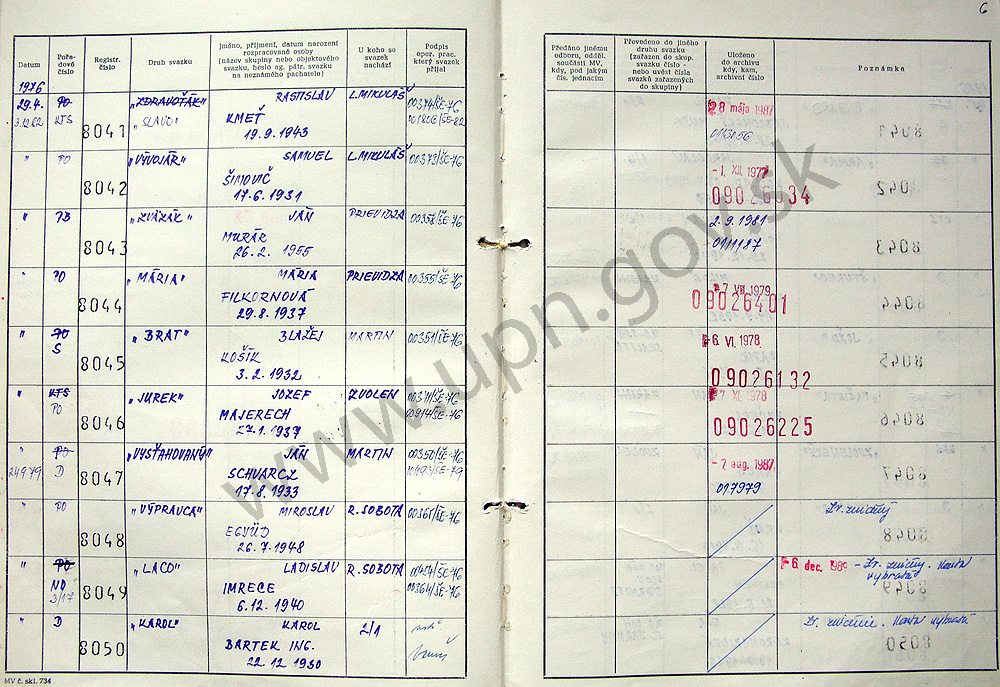 6
Datum
Pořadové číslo
Registr. číslo
Druh svazku
Jméno, příjmení, datum narození
rozpracované osoby
(název skupiny nebo objektového
svazku, heslo ag. pátr. svazku
na neznámého pachatele)
U koho se
svazek
nachází
Podpis
oper. prac.
který svazek
přijal
Předáno jinému
odboru, odděl.
součásti MV,
kdy, pod jakým
čís. jednacím
Převedeno do jiného
druhu svazku
(zařazen do skup.
svazku číslo -
nebo uvést čísla
svazků zařazených
do skupiny)
Uloženo
do archivu
kdy, kam,
archivní číslo
Poznámka
1976
29.4. PO 8041 „ZDRAVOŤÁK" RASTISLAV L.MIKULÁŠ 00374/ŠE-76 28 mája 1987
3.12.82 KTS „SLAVO" KMEŤ 00180
19.9.1943
" PO 8042 „VÝVOJÁR" SAMUEL L.MIKULÁŠ 00373/ŠE-76 -1. XII. 1977
ŠIMOVIČ 09026034
17.6.1931
" 8043 JÁN PRIEVIDZA 00358/ŠE-76 2.9.1981
MURÁR 011187
26.2. 1955
" PO 8044 „MÁRIA" MÁRIA PRIEVIDZA 00355/ŠE-76 7 VIII 1979
FILKORNOVÁ 09026401
29.8.1937
" PO 8045 „BRAT" BLAŽEJ MARTIN 00351/ŠE-76 6. VI. 1978
S KOŠÍK 09026132
3.2.1932
" KTS 8046 „JUREK" JOZEF ZVOLEN 00371/ŠE-76 XI. 1978
PO MAJERECH 00914/ŠE-76 09026225
27.1.1937
" PO 8047 „VYSŤAHOVANÝ" JÁN MARTIN 00350/ŠE-76 -7 aug. 1987
24.9.79 D SCHVARCZ 017979
17.8.1933
" PO 8048 „VÝPRAVCA" MIROSLAV R.SOBOTA 00365/ŠE-76 Zv. zničený
EGYÜD
26.7.1948
" PO 8049 „LACO" LADISLAV R.SOBOTA 6. dec. 1989 - Zv. zničený. Karta
ND IMRECE 00364/ŠE-76 vybratá
6.12.1940
" D 8050 „KAROL" KAROL 2/1 Zv. zničenie. Karta vybratá
BARTEK ING.
22.12.1930
MV č. skl. 734
www.upn.gov.sk